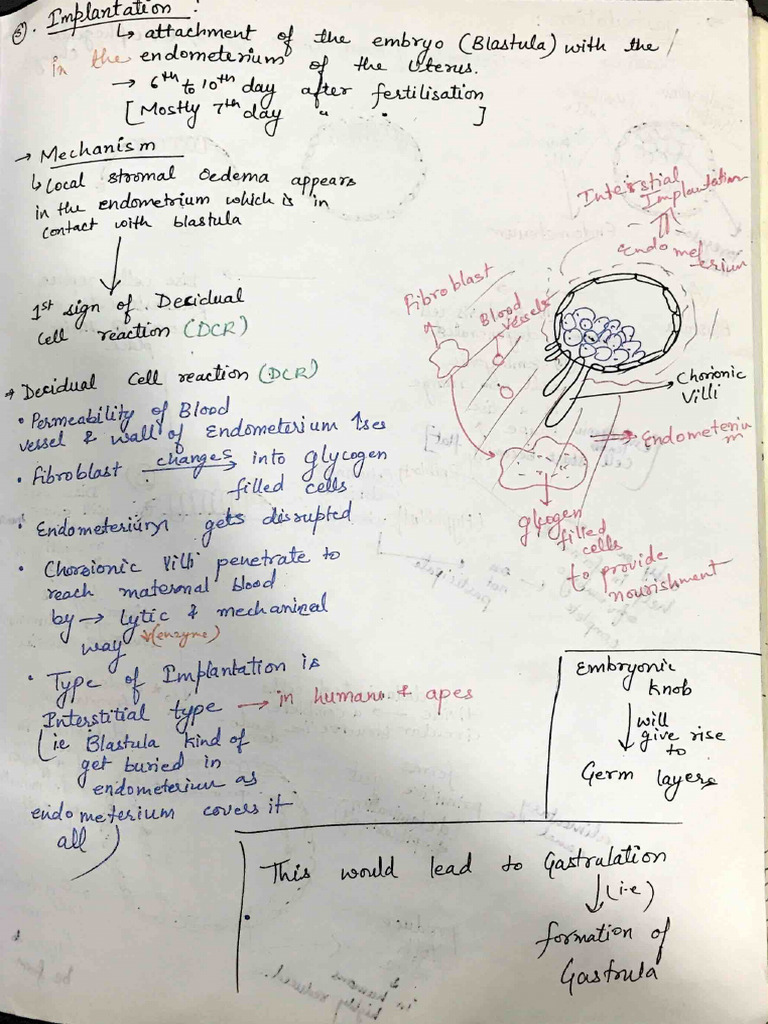 5). Implantation :
↳ attachment of the embryo (Blastula) with the /
in the endometerium of the Uterus.
→ 6th to 10th day after fertilisation
[Mostly 7th day " " ]
→ Mechanism
↳ Local stromal Oedema appears
in the endometrium which is in
contact with blastula
1st sign of Decidual
cell reaction (DCR)
→ Decidual Cell reaction (DCR)
• Permeability of Blood
vessel & wall of Endometerium ↑ses
• Fibroblast changes into glycogen
filled cells
• Endometerium gets disrupted
• Chorionic Villi penetrate to
reach maternal blood
by → Lytic & mechanical
way (enzyme)
• Type of Implantation is
Interstitial type → in human & apes
(ie Blastula kind of
get buried in
endometerium as
endometerium covers it
all)
Interstial
Implantation
Endomet
erium
Fibroblast
Blood
vessels
Chorionic
Villi
Endometeriu
m
glcogen
filled
cells
to provide
nourishment
Embryonic
knob
will
give rise
to
Germ layers
This would lead to Gastrulation
(i.e)
formation of
Gastrula